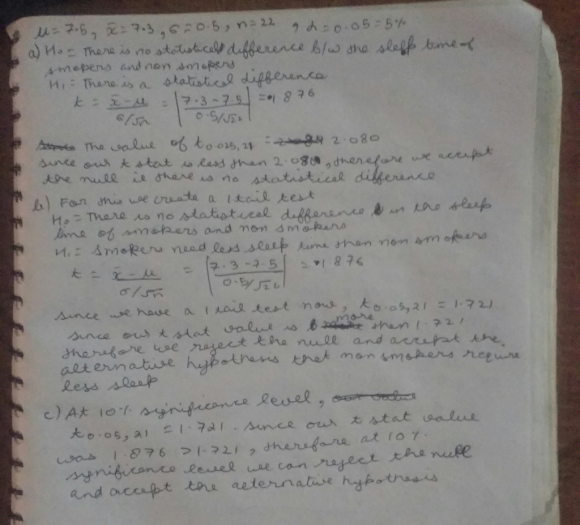 μ = 7.5, x̄ = 7.3, σ = 0.5, n = 22, α = 0.05 = 5%
a) H₀ = There is no statistical difference b/w the sleep time of
smokers and non smokers
H₁ = There is a statistical difference
t = x̄ - μ / σ/√n = |7.3 - 7.5 / 0.5/√22| = 1.876
The value of t0.025, 21 = 2.080
since our t stat is less than 2.080, therefore we accept
the null ie there is no statistical difference
b) For this we create a 1 tail test
H₀ = There is no statistical difference in the sleep
time of smokers and non smokers
H₁ = Smokers need less sleep time than non smokers
t = x̄ - μ / σ/√n = |7.3 - 7.5 / 0.5/√22| = 1.876
since we have a 1 tail test now, t0.05, 21 = 1.721
since our t stat value is more than 1.721
therefore we reject the null and accept the
alternative hypothesis that non smokers require
less sleep
c) At 10% significance level,
t0.05, 21 = 1.721. since our t stat value
was 1.876 > 1.721, therefore at 10%
significance level we can reject the null
and accept the alternative hypothesis